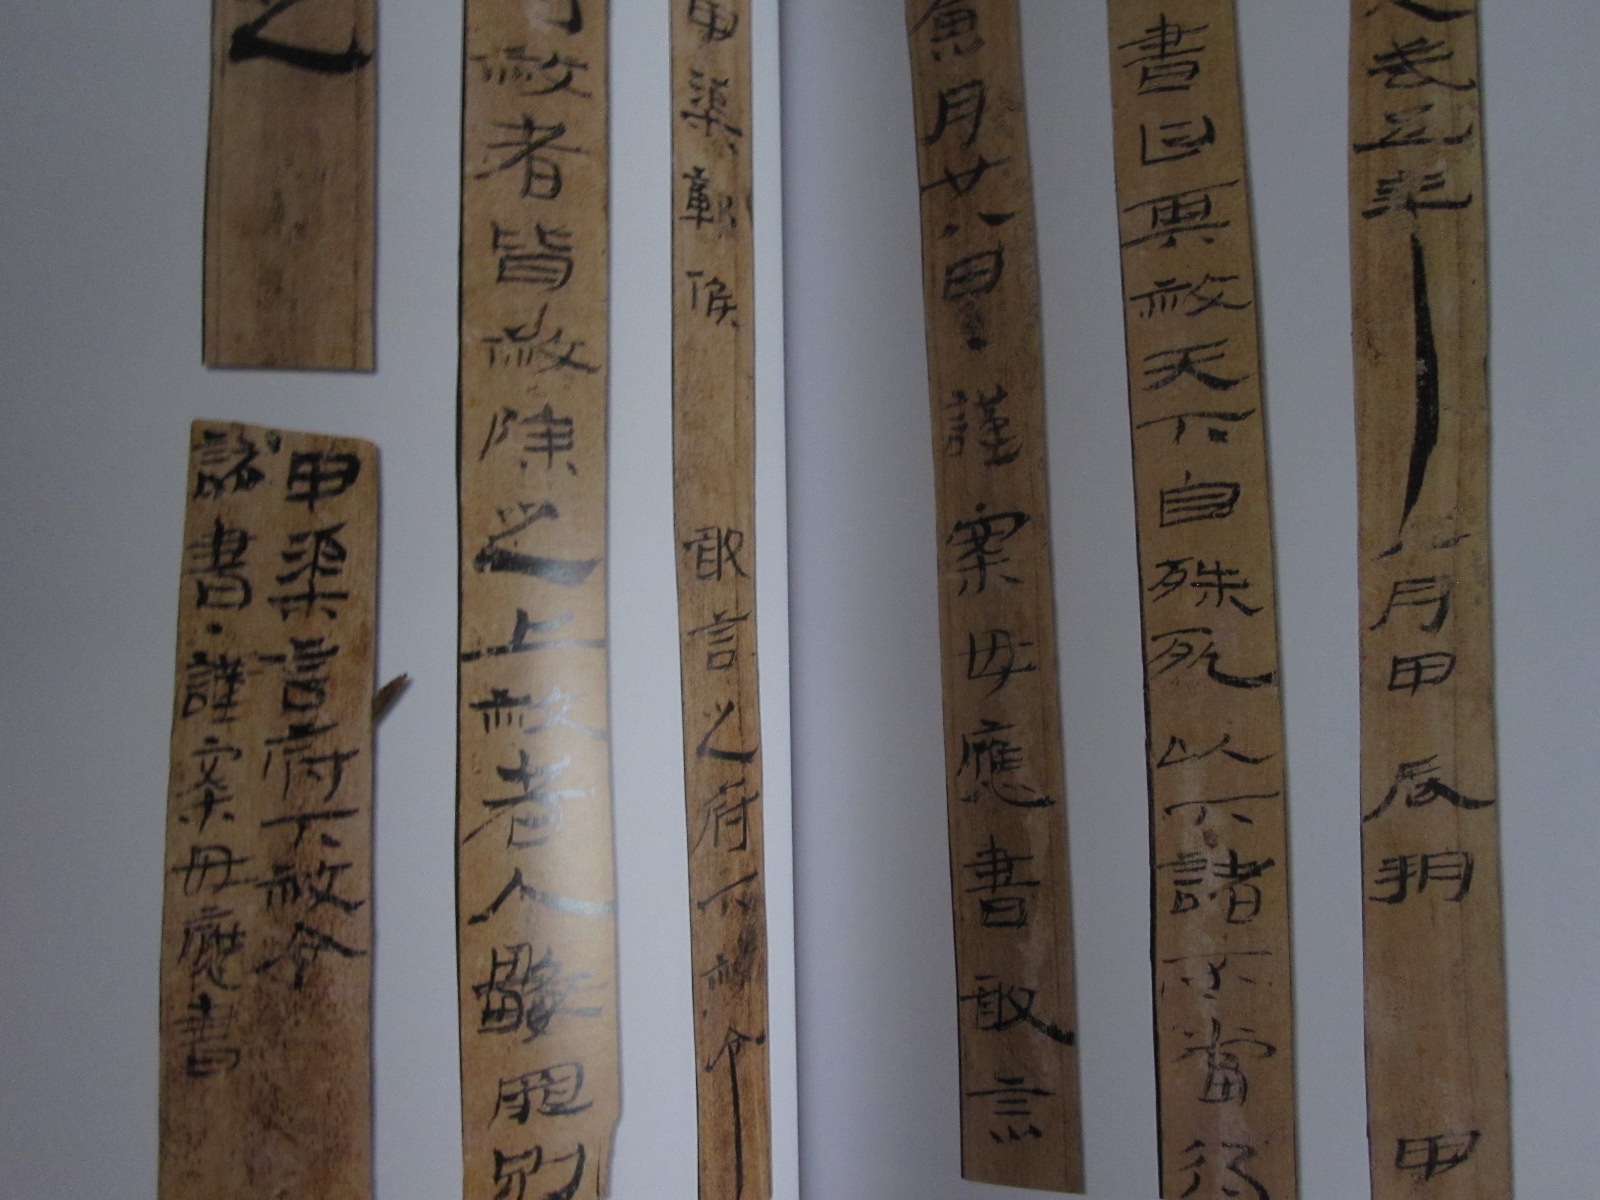 武五年八月甲辰朔 甲
書曰其赦天下自殊死以下諸不當得
會月廿八日·謹案毋應書敢言
甲渠鄣候 敢言之府下赦令
赦者皆赦除之上赦者人數罪別
之
甲渠言府下赦令
詔書·謹案毋應書